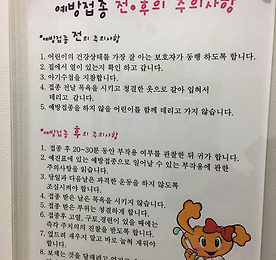 예방접종 전•후의 주의사항
*예방접종 전의 주의사항
1. 어린이의 건강상태를 가장 잘 아는 보호자가 동행 하도록 합니다.
2. 집에서 열이 있는지 확인 하고 갑니다.
3. 아기수첩을 지참합니다.
4. 접종 전날 목욕을 시키고 청결한 옷으로 갈아 입혀서
데리고 갑니다.
5. 예방접종을 하지 않을 어린이를 함께 데리고 가지 않습니다.
*예방접종 후의 주의사항
1. 접종 후 20~30분 동안 부작용 여부를 관찰한 뒤 귀가 합니다.
2. 예진표에 있는 예방접종으로 일어날 수 있는 부작용에 관한
주의사항을 읽습니다.
3. 당일과 다음날은 과격한 운동을 하지 않도록
조심시켜야 합니다.
4. 접종 받은 날은 목욕을 시키지 않습니다.
5. 접종 받은 부위는 청결하게 합니다.
6. 접종후 고열, 구토, 경련이 있을 때에는
즉각 주치의의 진찰을 받도록 합니다.
7. 엎드려 재우지 말고 바로 눕혀 재워야
합니다.
8. 보채는 것을 달래려고